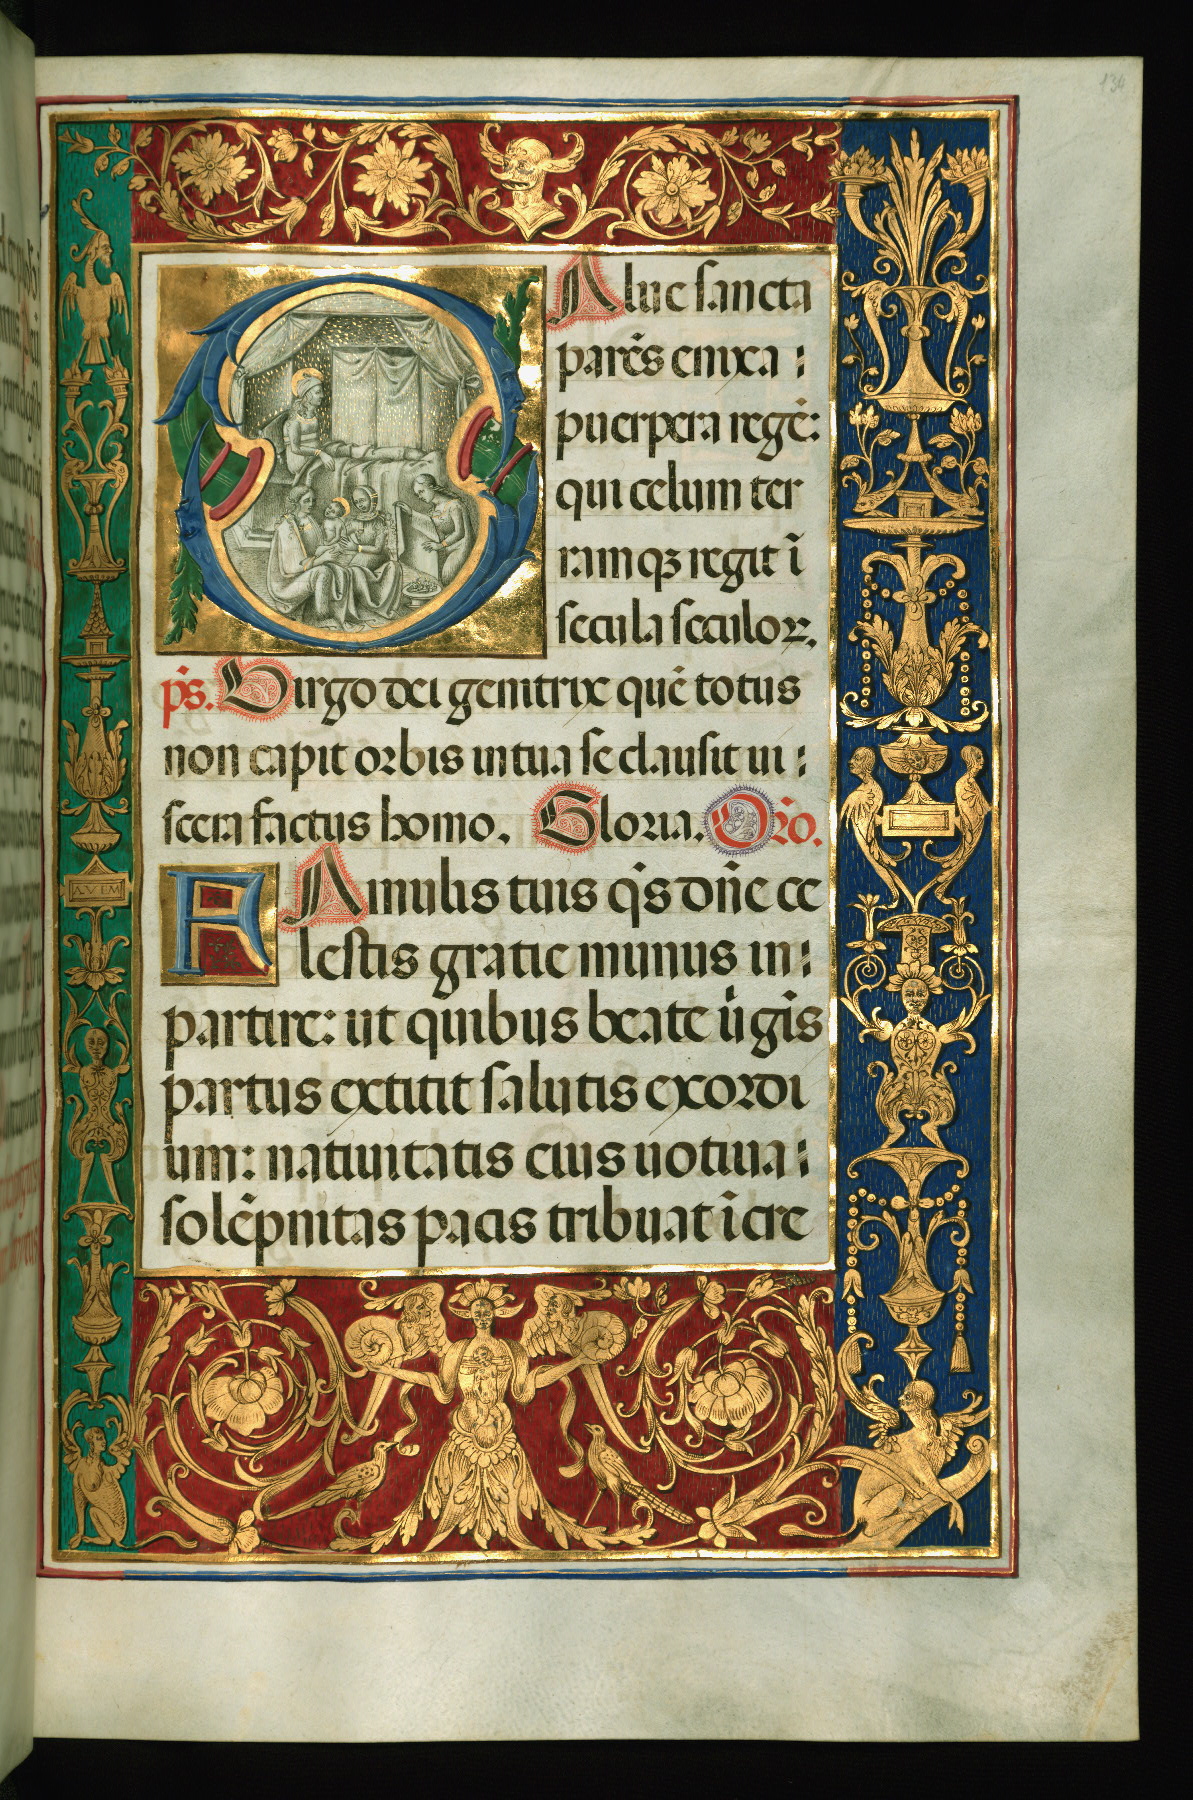 SAlue sancta
parēs enixa :
puerpera regē:
qui celum ter
ramqȝ regit ī
secula seculoꝝ.
ps̄. Virgo dei genitrix quē totus
non capit orbis in tua se clausit ui :
scera factus homo. Gloria. Or̄o.
FAmulis tuis q̄s dn̄e ce
lestis gratie munus in :
partire: ut quibus beate ūgīs
partus extitit salutis exordi
um: natiuitatis eius uotiua :
solēpnitas pacis tribuat īcre
AVEM
134